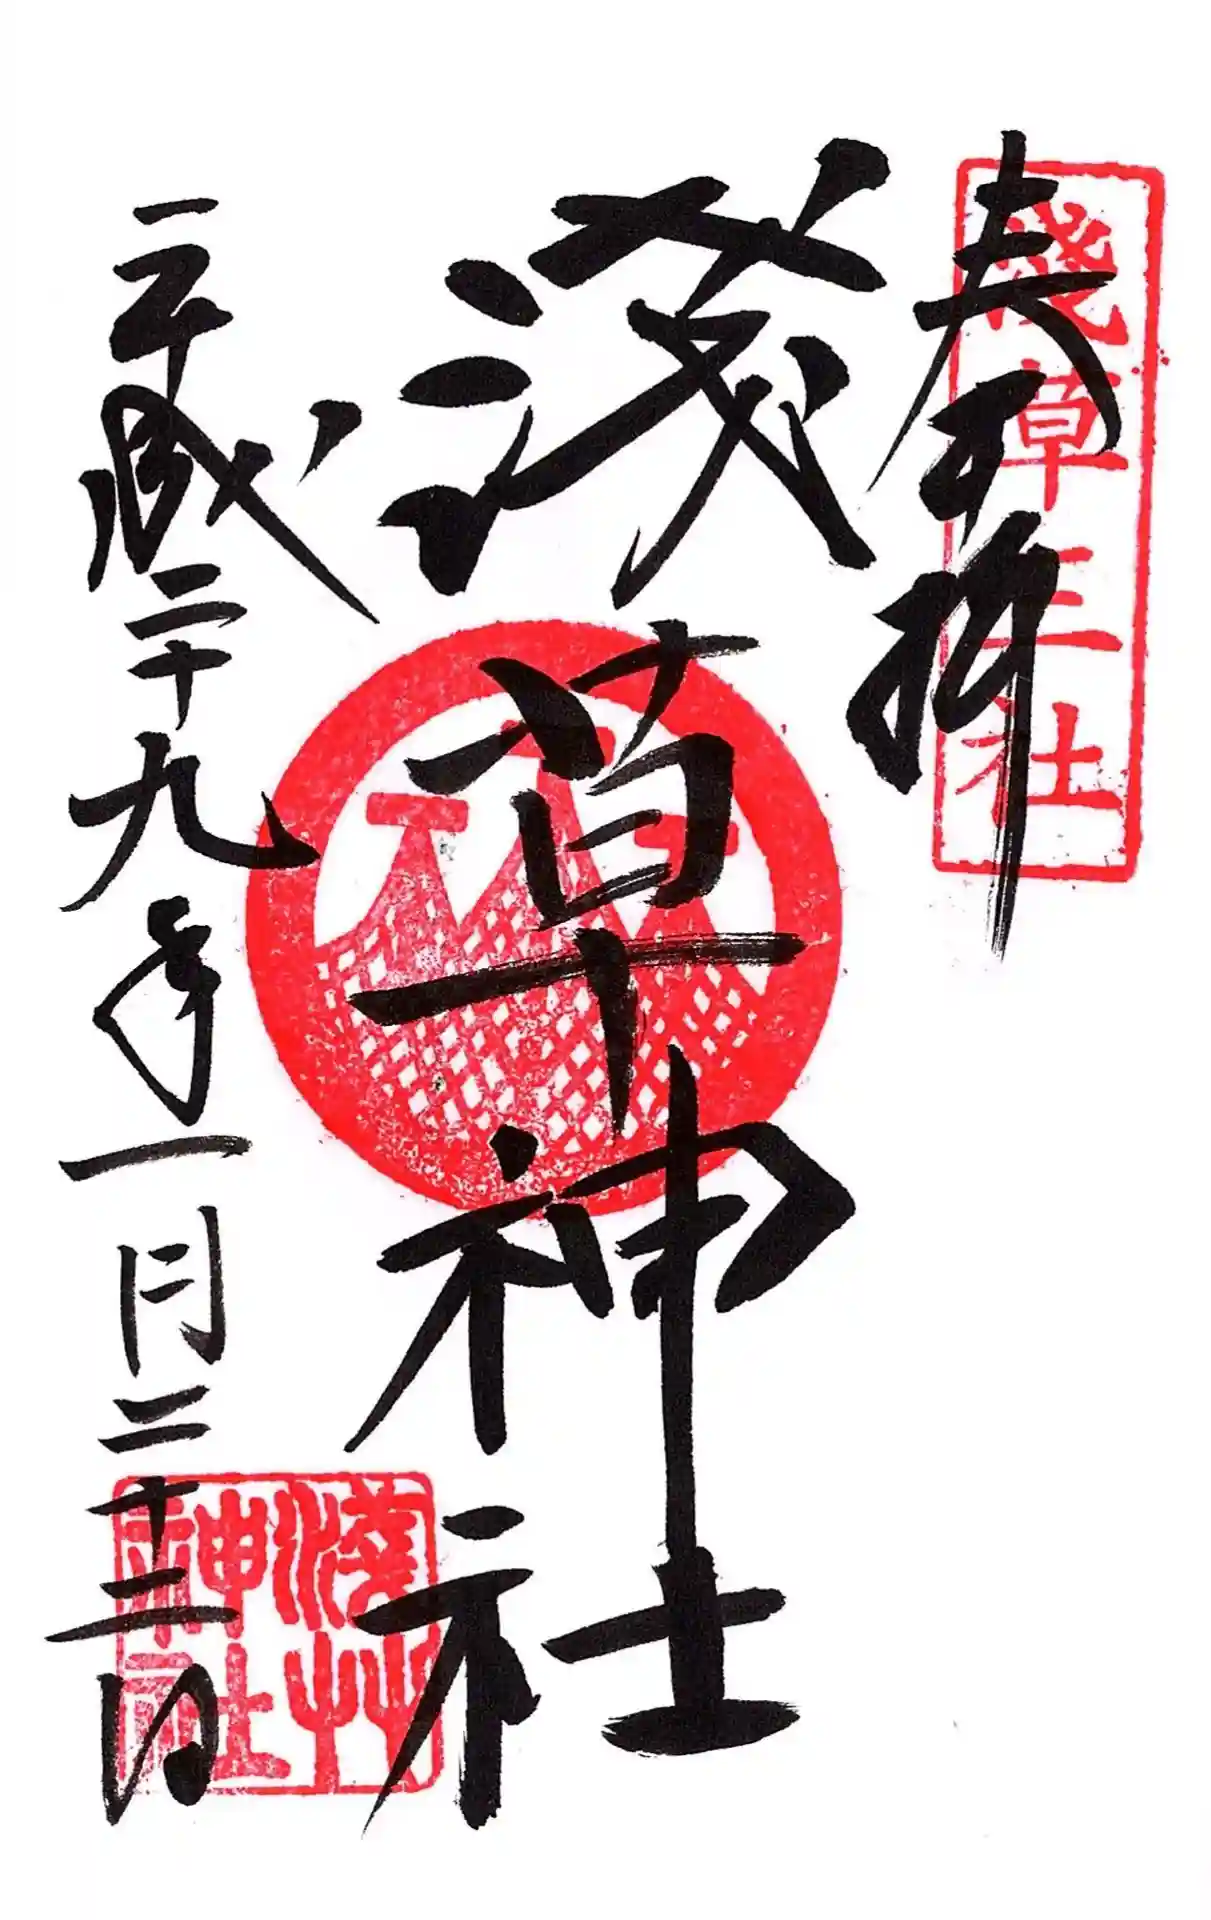 奉拝
淺草三社
淺草神社
平成二十九年一月二十二日
淺草
神社